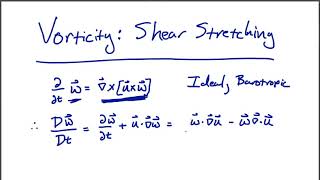 Vorticity: Shear Stretching
∂/∂t ω⃗ = ∇⃗×[u⃗×ω⃗] Ideal, Barotropic
∴ Dω⃗/Dt = ∂ω⃗/∂t + u⃗·∇⃗ω⃗ = ω⃗·∇⃗u⃗ - ω⃗∇⃗·u⃗